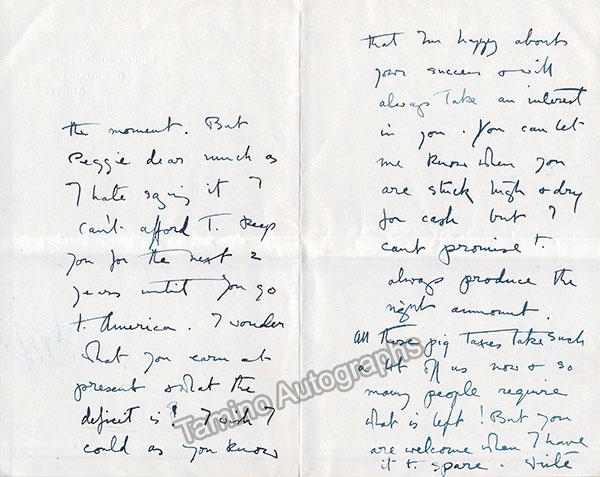 the moment. But
Peggie dear much as
I hate saying it I
can't afford t. keep
you for the next 2
years until you go
t. America. I wonder
what you earn at
present & what the
deficit is? I wish I
could as you know
that I'm happy about
your success & will
always take an interest
in you. You can let
me know when you
are stuck high & dry
for cash but I
cant promise t.
always produce the
right ammount.
All those pig taxes take such
a lot of us now & so
many people require
what is left! But you
are welcome when I have
it t. spare.
Tamino Autographs